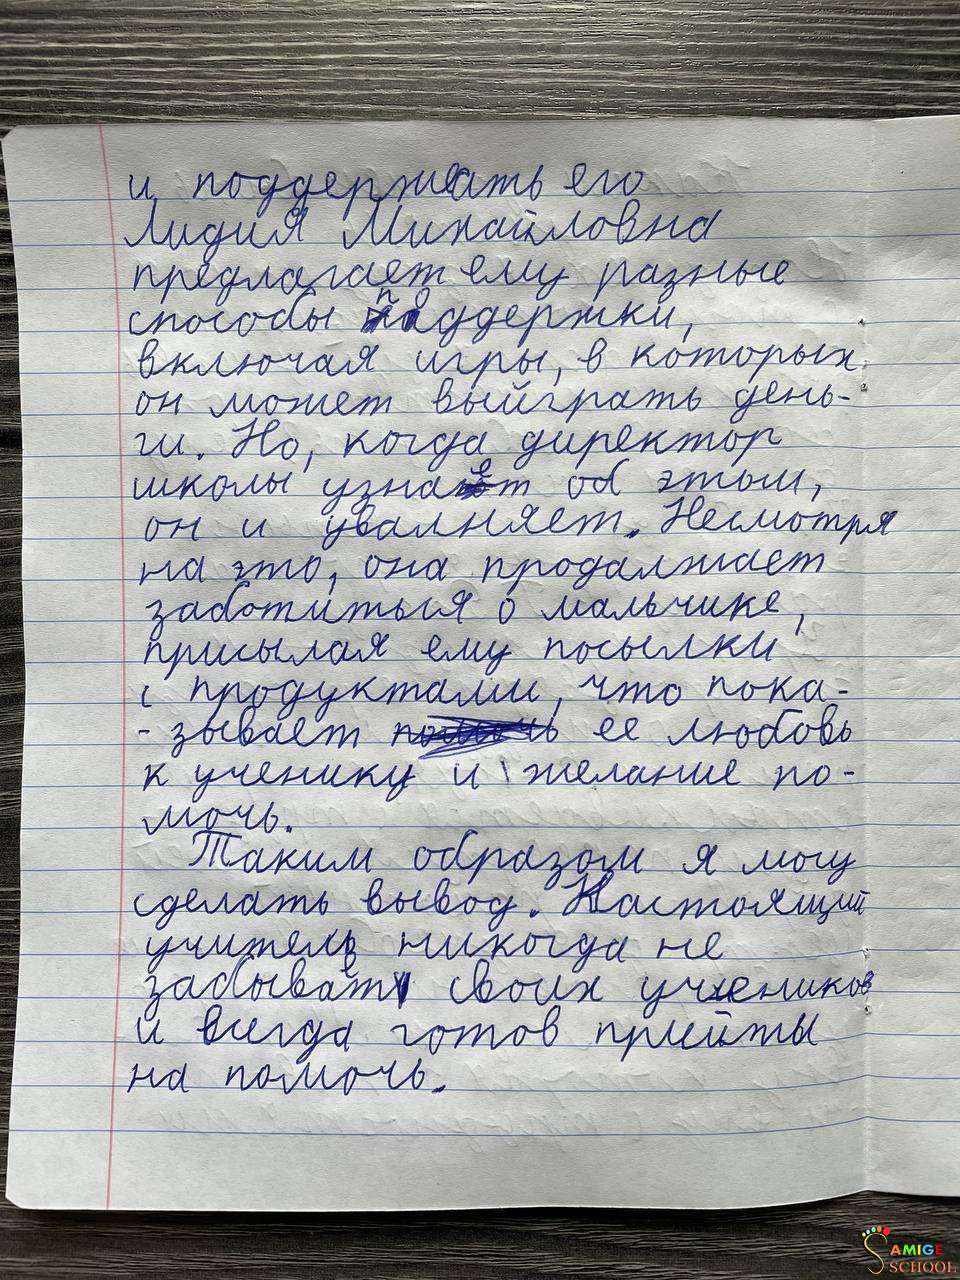 и поддержать его
Лидия Михайловна
предлагает ему разные
способы поддержки,
включая игры, в которых
он может выйграть день-
ги. Но, когда директор
школы узнает об этом,
он и увалняет. Несмотря
на это, она продалжает
заботиться о мальчике,
присылая ему посылки
с продуктами, что пока-
- зывает ее любовь
к ученику и желание по-
мочь.
Таким образом я могу
сделать вывод. Настоящий
учитель никогда не
забывает своих учеников
и всегда готов прийты
на помочь.
SAMIGE
SCHOOL